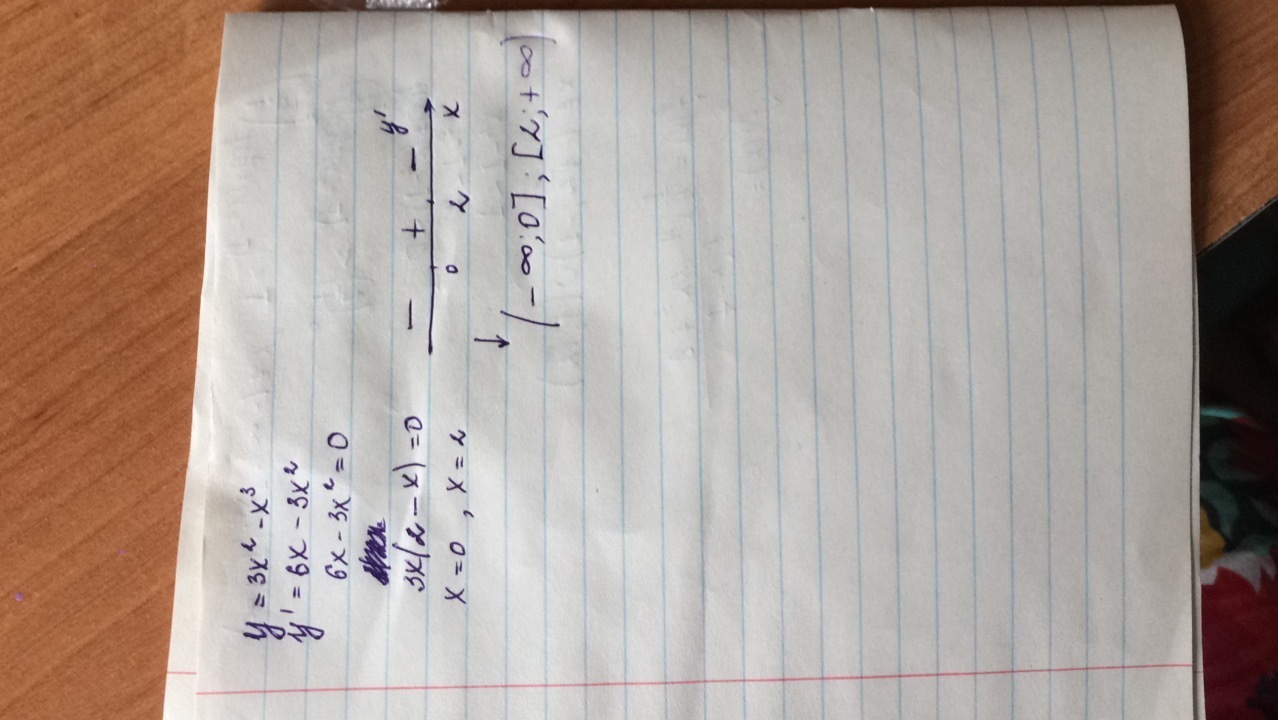 y = 3x² - x³
y' = 6x - 3x²
6x - 3x² = 0
3x(2 - x) = 0
x = 0 , x = 2
- + - y'
0 2 x
↓ (-∞;0];[2;+∞)